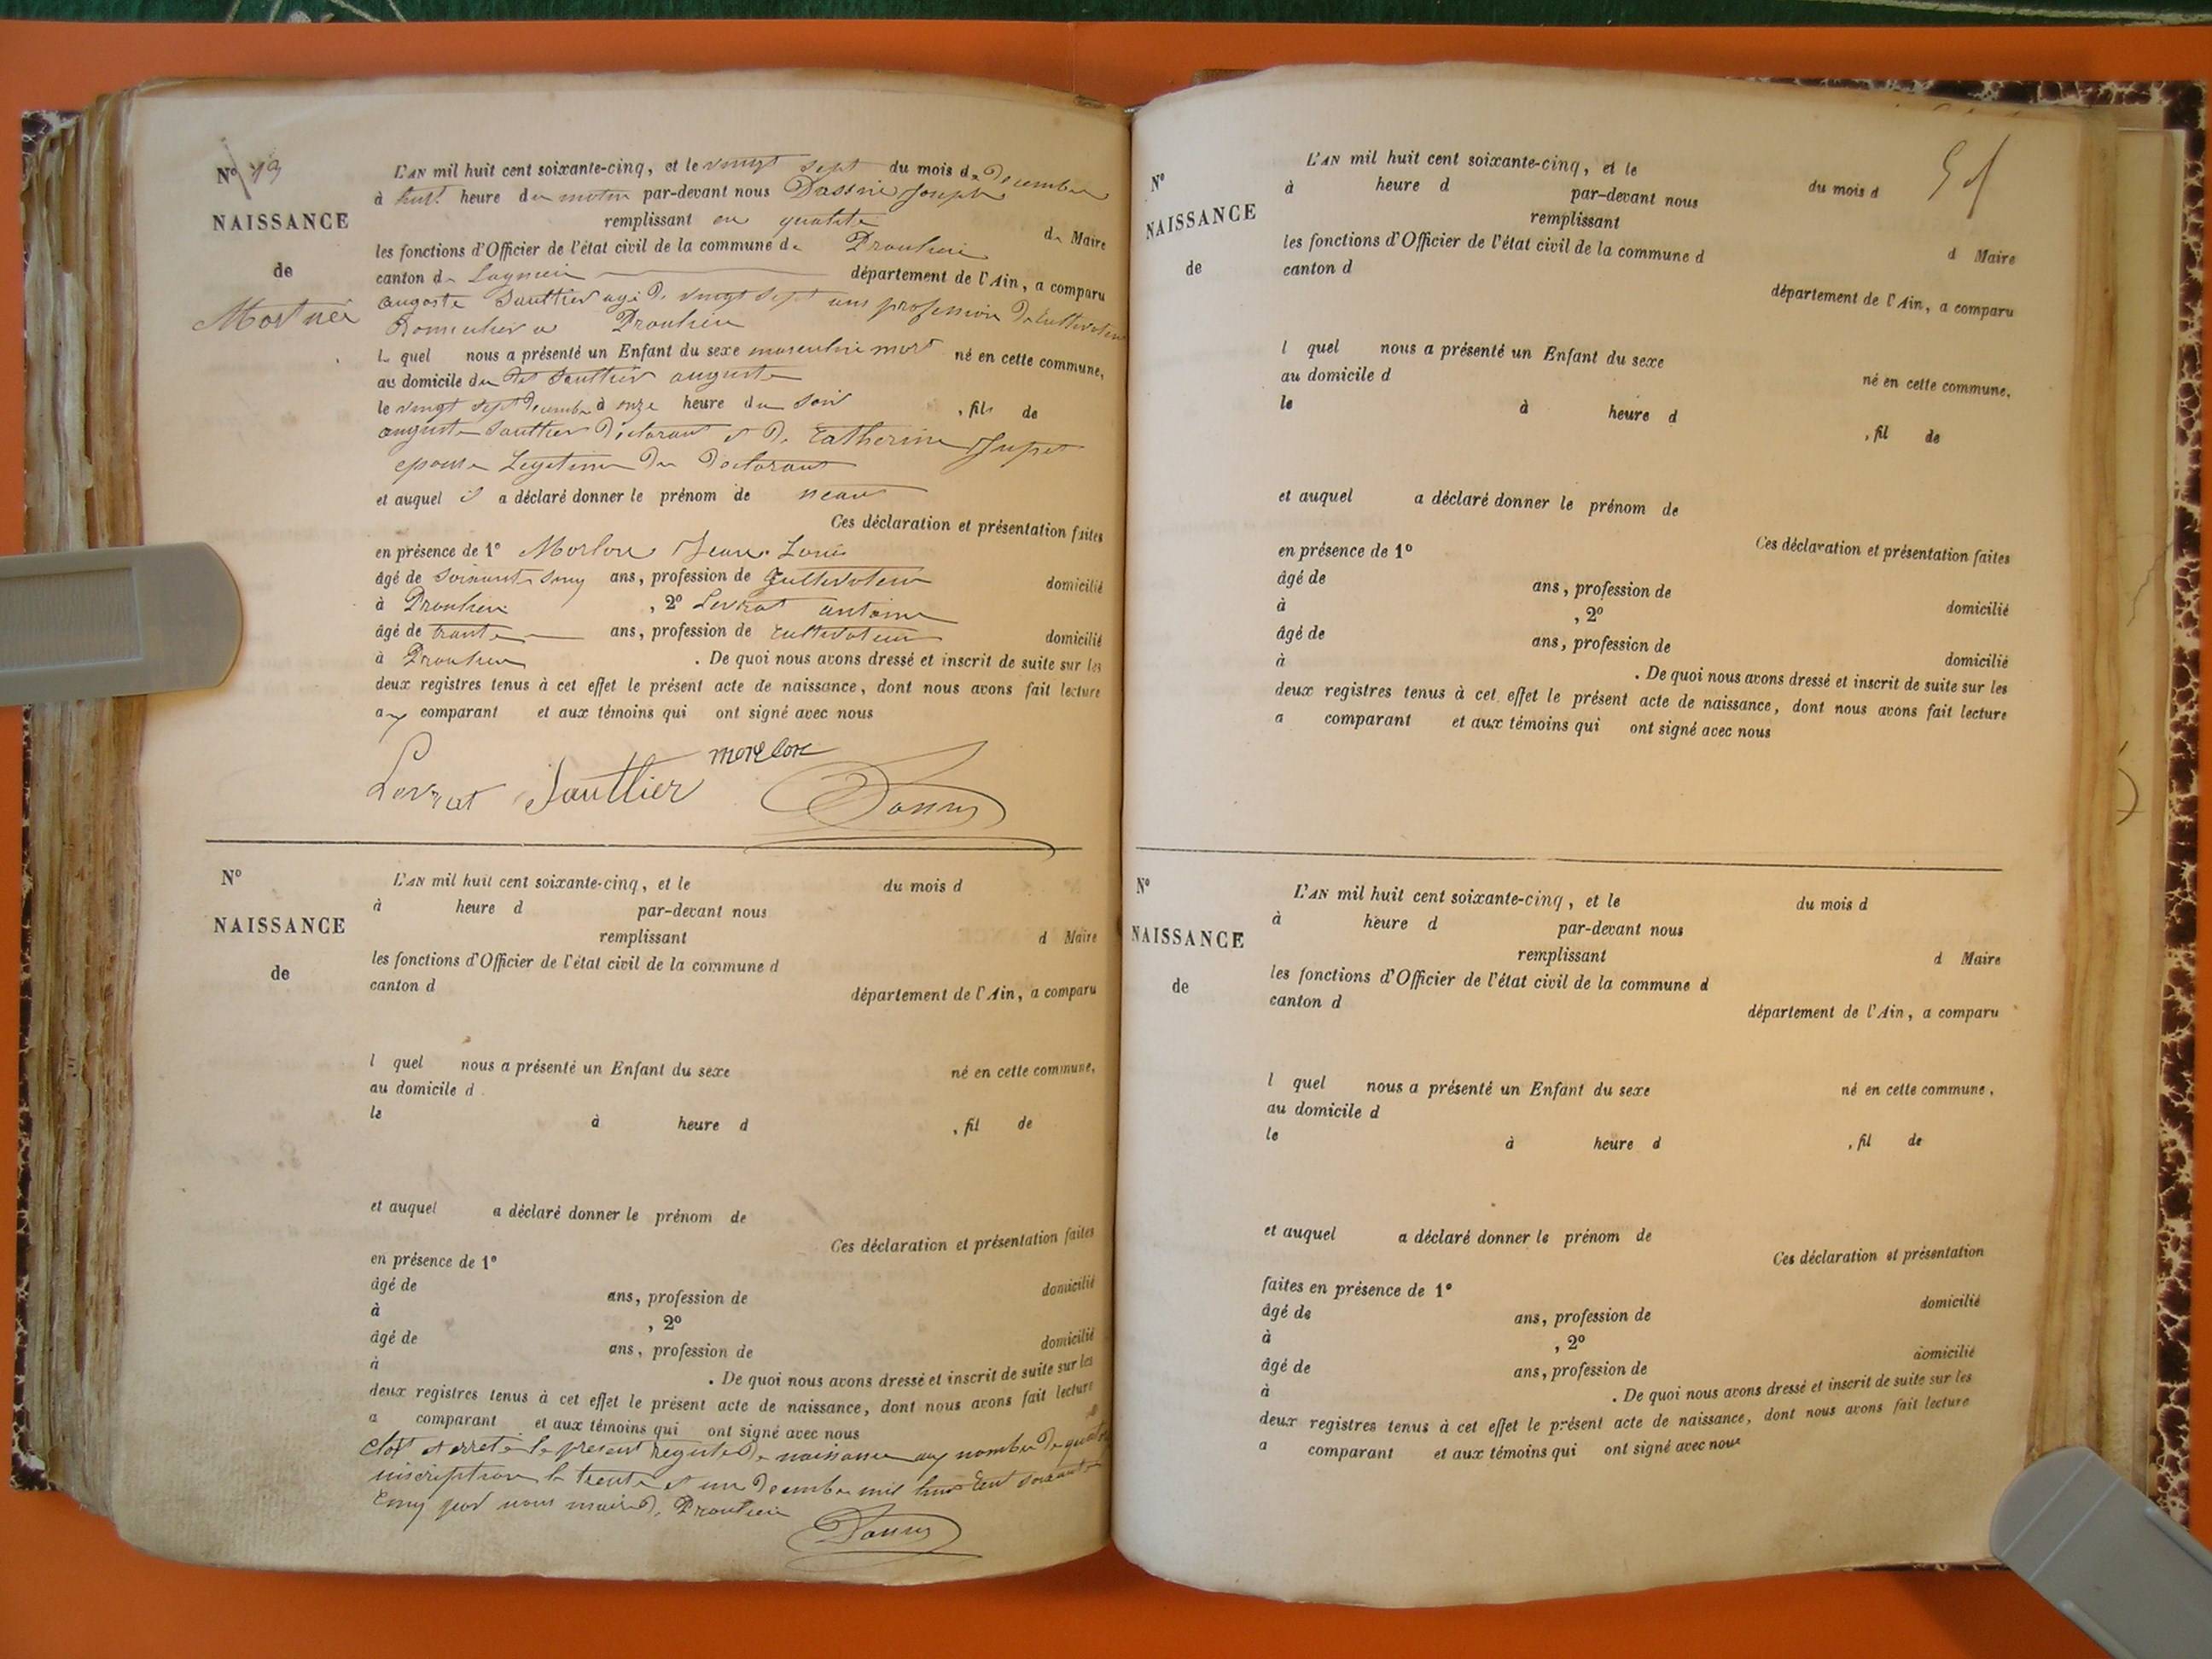 N° 13
NAISSANCE
de
Mort né
L'AN mil huit cent soixante-cinq, et le vingt sept du mois de Decembre
à huit heure du matin par-devant nous Joseph
remplissant en qualité de Maire
les fonctions d'Officier de l'état civil de la commune de Proulieu
canton de Lagnieu département de l'Ain, a comparu
auguste Sauttier agé de vingt sept ans profession de Cultivateur
Domicilier a Proulieu
le quel nous a présenté un Enfant du sexe masculin mort né en cette commune,
au domicile du dit Sauttier auguste
le vingt sept Decembre à onze heure du soir , fils de
auguste Sauttier Declarant et de Catherine Jupet
epouse Legetime du Declarant
et auquel il a déclaré donner le prénom de neant
Ces déclaration et présentation faites
en présence de 1° Morlon Jean Louis
âgé de soixante cinq ans, profession de Cultivateur domicilié
à Proulieu , 2° Levrat antoine
âgé de trante ans, profession de Cultivateur domicilié
à Proulieu . De quoi nous avons dressé et inscrit de suite sur les
deux registres tenus à cet effet le présent acte de naissance, dont nous avons fait lecture
aux comparant et aux témoins qui ont signé avec nous
Levrat Sauttier morelon
N°
NAISSANCE
de
L'AN mil huit cent soixante-cinq, et le du mois d
à heure d par-devant nous
remplissant d Maire
les fonctions d'Officier de l'état civil de la commune d
canton d département de l'Ain, a comparu
l quel nous a présenté un Enfant du sexe né en cette commune,
au domicile d
le à heure d , fil de
et auquel a déclaré donner le prénom de
Ces déclaration et présentation faites
en présence de 1°
âgé de ans, profession de domicilié
à , 2°
âgé de ans, profession de domicilié
à . De quoi nous avons dressé et inscrit de suite sur les
deux registres tenus à cet effet le présent acte de naissance, dont nous avons fait lecture
a comparant et aux témoins qui ont signé avec nous
Clos et arreté le present registre de naissance au nombre de
inscription le trente et un Decembre mil huit Cent soixante
Cinq par nous maire de Proulieu
N°
NAISSANCE
de
L'AN mil huit cent soixante-cinq, et le du mois d
à heure d par-devant nous
remplissant d Maire
les fonctions d'Officier de l'état civil de la commune d
canton d département de l'Ain, a comparu
l quel nous a présenté un Enfant du sexe né en cette commune,
au domicile d
le à heure d , fil de
et auquel a déclaré donner le prénom de
Ces déclaration et présentation faites
en présence de 1°
âgé de ans, profession de domicilié
à , 2°
âgé de ans, profession de domicilié
à . De quoi nous avons dressé et inscrit de suite sur les
deux registres tenus à cet effet le présent acte de naissance, dont nous avons fait lecture
a comparant et aux témoins qui ont signé avec nous
N°
NAISSANCE
de
L'AN mil huit cent soixante-cinq, et le du mois d
à heure d par-devant nous
remplissant d Maire
les fonctions d'Officier de l'état civil de la commune d
canton d département de l'Ain, a comparu
l quel nous a présenté un Enfant du sexe né en cette commune,
au domicile d
le à heure d , fil de
et auquel a déclaré donner le prénom de
Ces déclaration et présentation
faites en présence de 1°
âgé de ans, profession de domicilié
à , 2°
âgé de ans, profession de domicilié
à . De quoi nous avons dressé et inscrit de suite sur les
deux registres tenus à cet effet le présent acte de naissance, dont nous avons fait lecture
a comparant et aux témoins qui ont signé avec nous